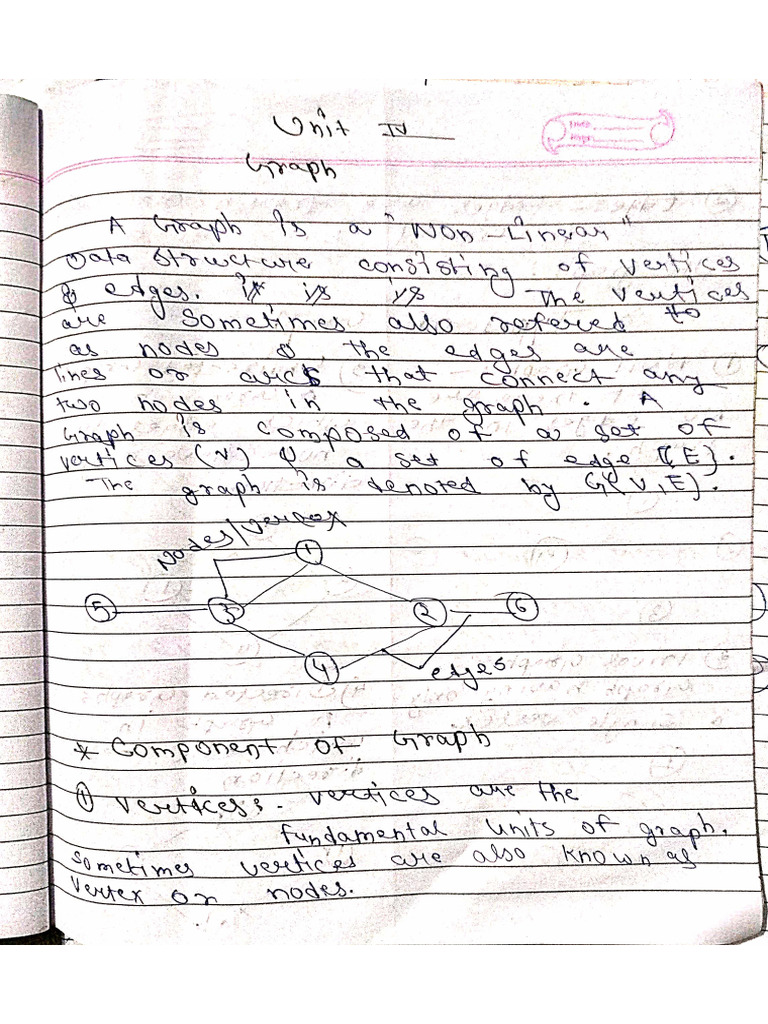 Unit IV
Graph
A Graph is a "Non-Linear"
Data structure consisting of vertices
& edges. The vertices
are sometimes also refered to
as nodes & the edges are
lines or arcs that connect any
two nodes in the graph. A
Graph is composed of a set of
vertices (V) & a set of edge (E).
The graph is denoted by G(V,E).
Nodes/Vertex
1
5 3 2 6
4
edges
* Component of Graph
① vertices:- vertices are the
fundamental units of graph.
sometimes vertices are also known as
vertex or nodes.